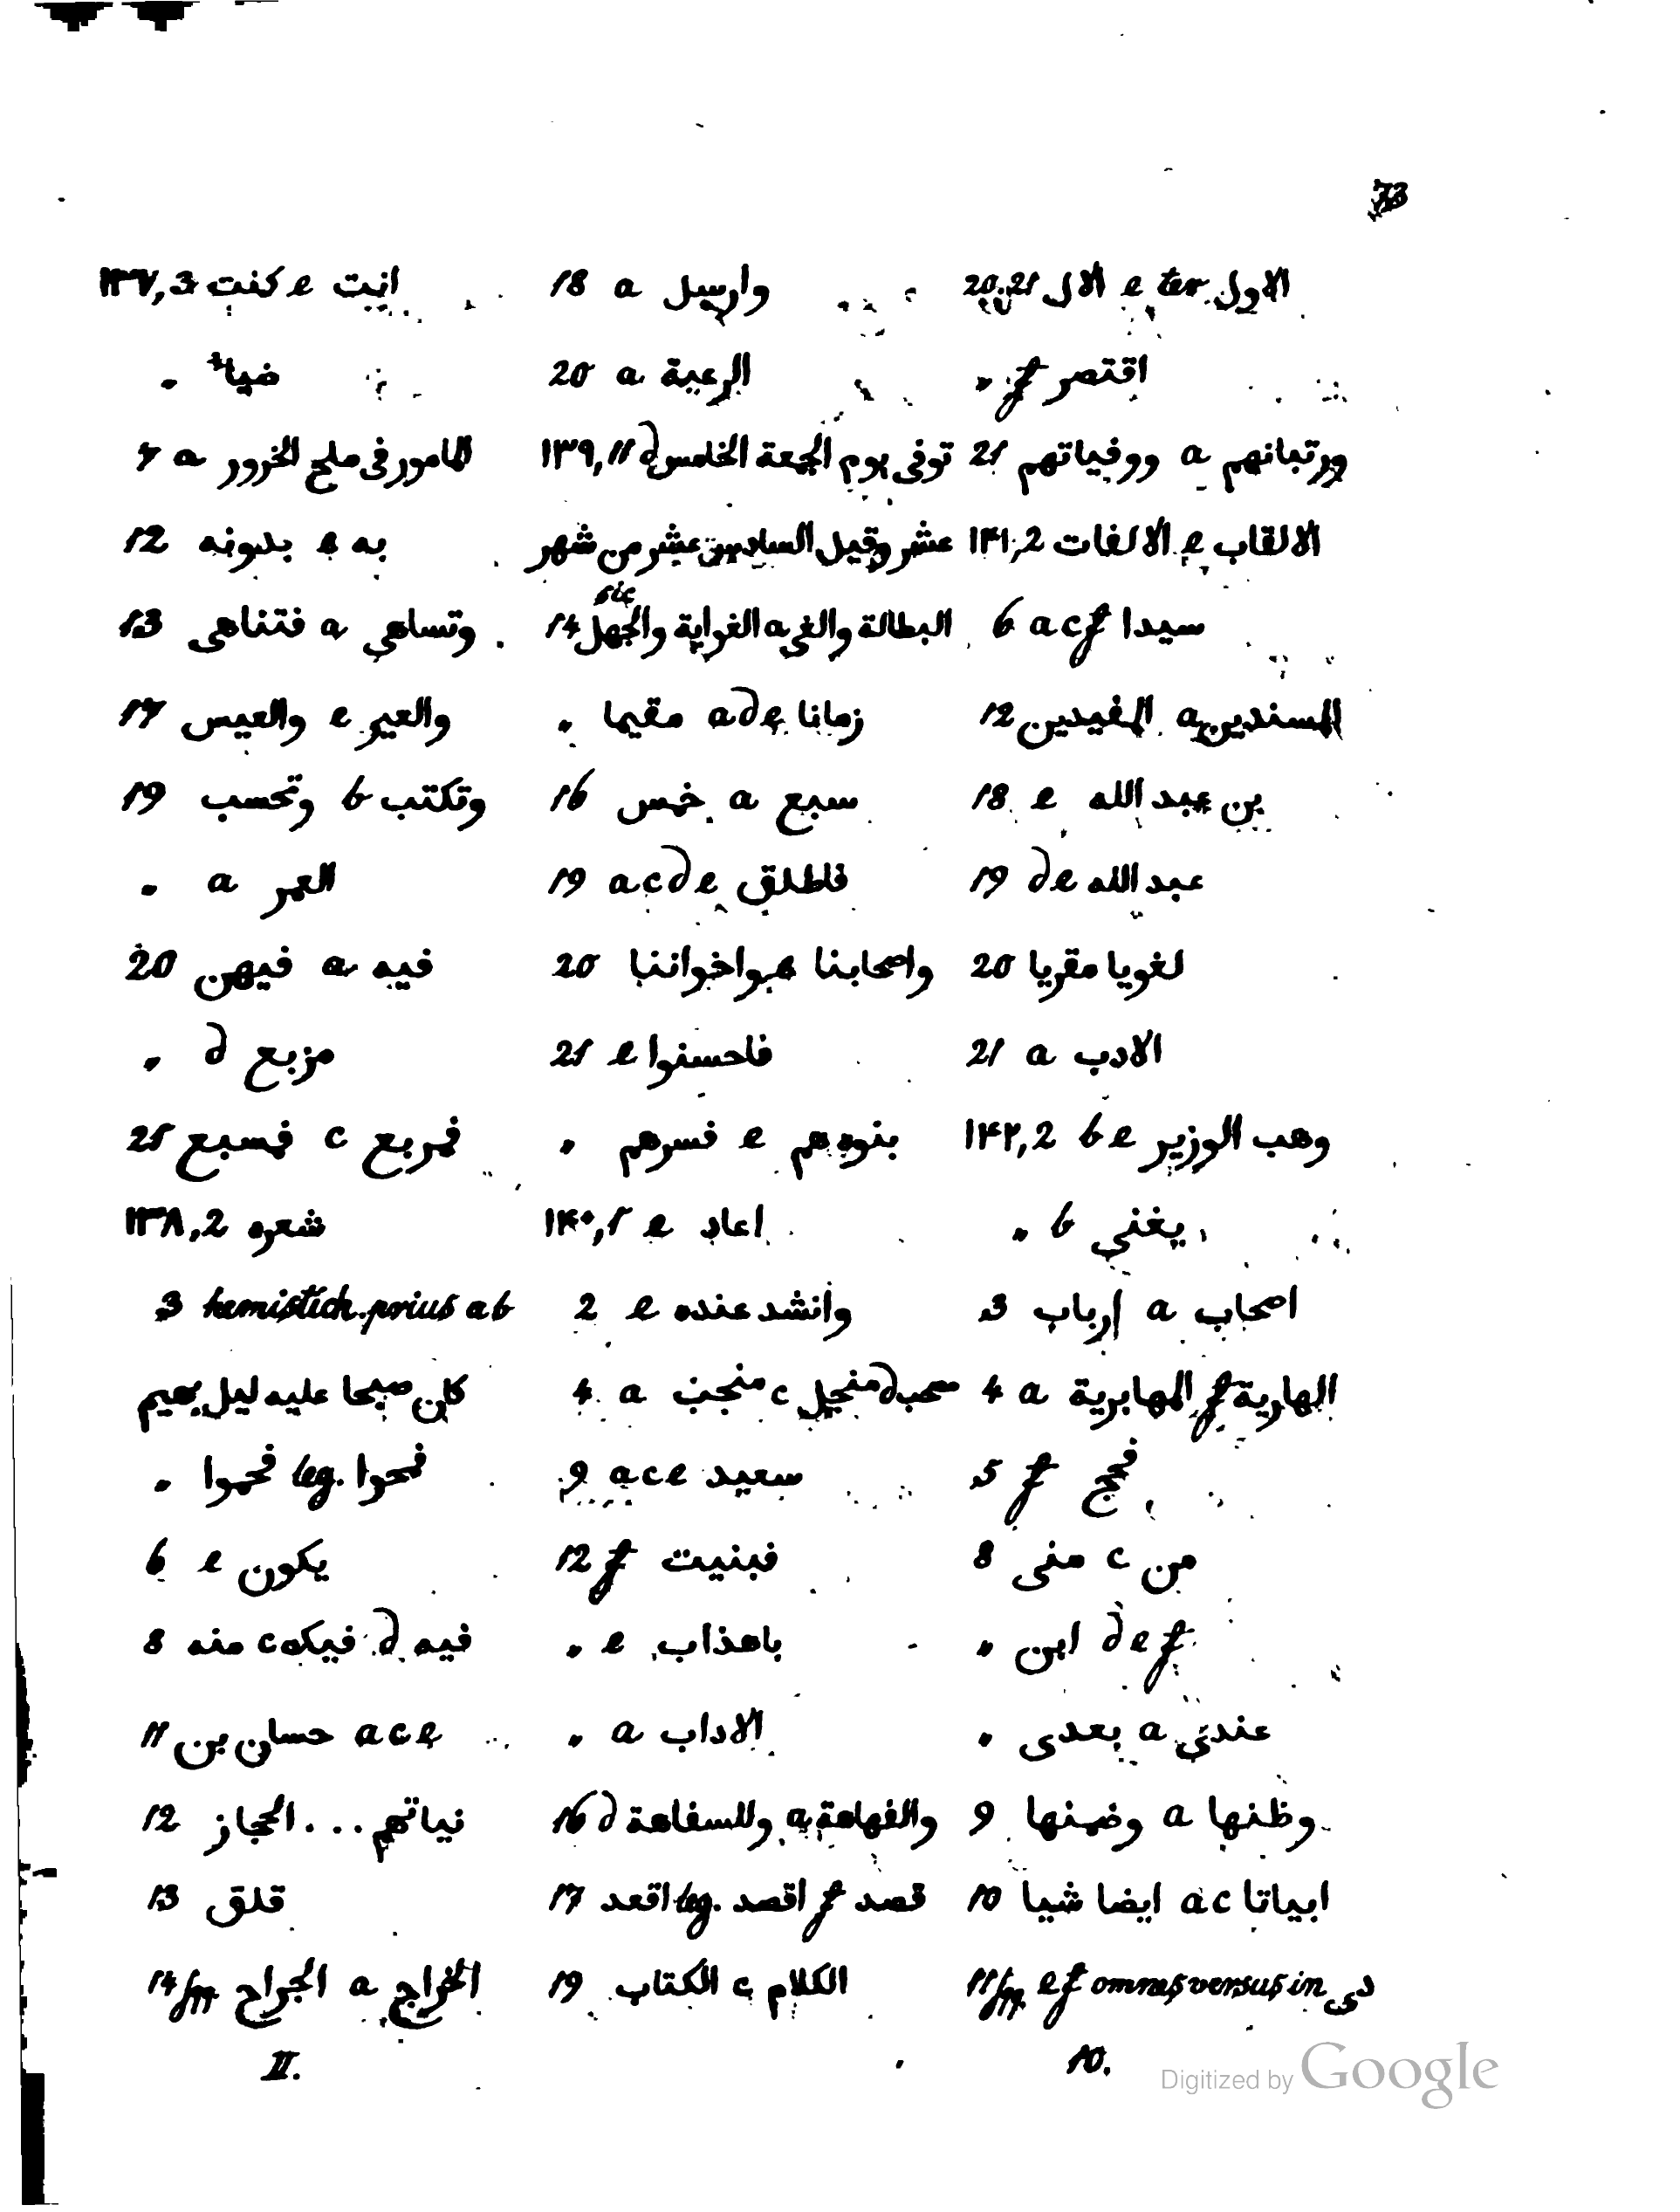 73
١٣٧,3 كنت e انيت
„ ضياء
7 a المامور فى ملج الخرور
12 بدونه e به
13 فتناهى a وتساهى
17 والعيس e والعير
19 وتحسب b وتكتب
„ a العمر
20 فيهن a فيه
„ d مزبع
25 فسبع c فربع
١٣٨,2 شعره
3 hemistich. prius a b
كان صبحا عليه ليل بهيم
„ فحموا leg. فحوا
6 e يكون
8 منه c فيكه d فيه
11 حسان بن a c e
12 نياتهم ... الحجاز
13 قلق
14 الجراح a الخراج
18 a وارسل
20 a الرعية
١٣٩,11 d توفى يوم الجمعة الخامس
عشر وقيل السادس عشر من شهر
sic
14 البطالة والغى a الغواية والجهل
„ مقيما a d e زمانا
16 خمس a سبع
19 a c d e فاطلق
20 واصحابنا واخواننا
21 e فاحسنوا
„ فسرهم e بنوهم
١٤٠,1 e اعاد
2 e وانشد عنده
4 a منجب c منجل d
9 a c e سعيد
12 f فبنيت
„ e باهذاب
„ a الاداب
16 d وللسفاهة a والفهاهة
17 اقعد leg. اقصد f قصد
19 الكتاب c الكلام
20.21 الال e ter الاول
„ f اقتصر
21 ووفياتهم a ورتبانهم
١٤١,2 الالفات e الالقاب
6 a c f سيدا
12 المفيدين a المسندين
18 e بن عبد الله
19 d e عبد الله
20 لغويا مقريا
21 a الادب
١٤٢,2 b e وهب الوزير
„ b يغنى
3 ارباب a اصحاب
4 a المهابرية f الهارية
5 f فحج
8 منى c من
„ ابن d e f
„ بعدى a عندى
9 وضمنها a وظنها
10 ايضا شيا a c ابياتا
11 e f omnes versus in دى
II.
10.
Digitized by Google